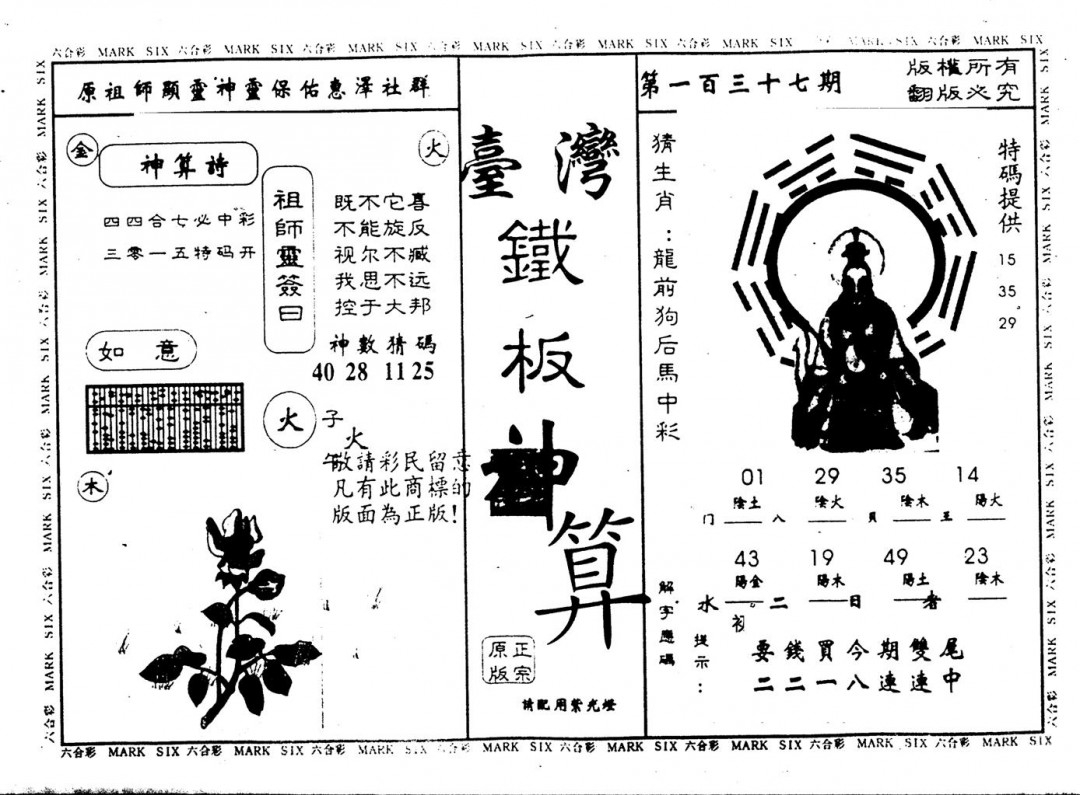 六合彩 MARK SIX 六合彩 MARK SIX 六合彩 MARK SIX 六合彩 MARK SIX 六合彩 MARK SIX 六合彩 MARK SIX 六合彩 MARK SIX
原祖師顯靈神靈保佑惠澤社群
金
神算詩
火
四四合七必中彩
三零一五特码开
祖師靈簽曰
既不它喜
不能旋反
视尔不臧
我思不远
控于大邦
神數猜碼
40 28 11 25
如意
火
子
火
敬請彩民留意
凡有此商標的
版面為正版!
木
臺灣
鐵
板
神
算
正宗
原版
請配用紫光燈
第一百三十七期
版權所有
翻版必究
猜生肖：龍前狗后馬中彩
特碼提供
15
35
29
01 29 35 14
陰土 陰火 陰木 陽火
门 八 貝 王
43 19 49 23
陽金 陽木 陽土 陰木
水 二 日 者
初
解字應碼
提示：
要錢買今期雙尾
二二一八連連中
六合彩 MARK SIX 六合彩 MARK SIX 六合彩 MARK SIX 六合彩 MARK SIX 六合彩 MARK SIX 六合彩 MARK SIX 六合彩 MARK SIX 六合彩 MARK SIX